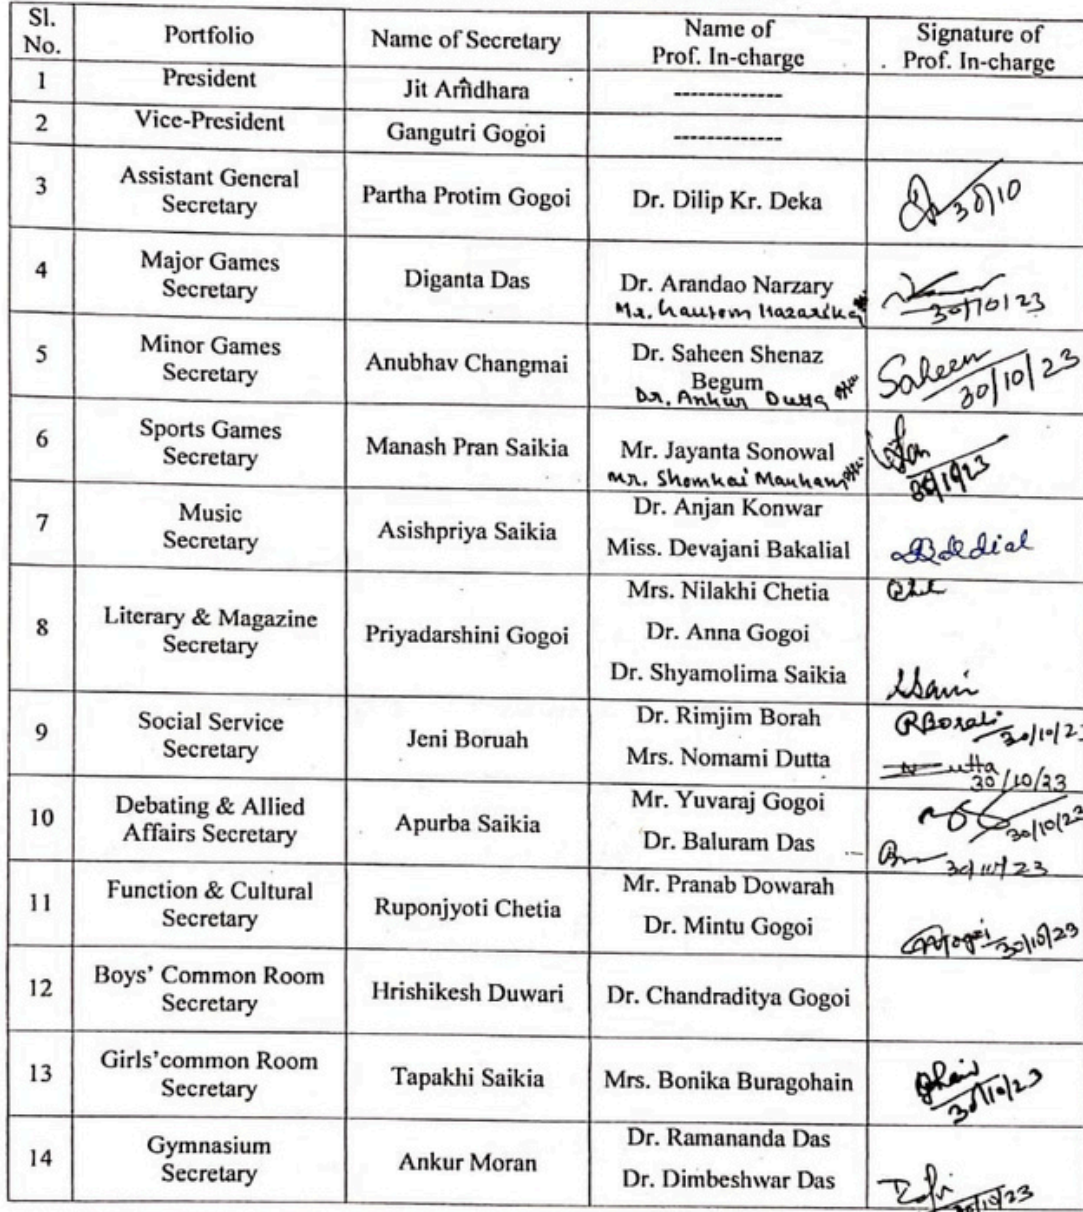 Sl. No. Portfolio Name of Secretary Name of Prof. In-charge Signature of Prof. In-charge
1 President Jit Amdhara ------------
2 Vice-President Gangutri Gogoi ------------
3 Assistant General Secretary Partha Protim Gogoi Dr. Dilip Kr. Deka 30/10
4 Major Games Secretary Diganta Das Dr. Arandao Narzary 30/10/23
Mr. Gautom Hazarika
5 Minor Games Secretary Anubhav Changmai Dr. Saheen Shenaz Begum Saheen 30/10/23
Dr. Ankur Dutta
6 Sports Games Secretary Manash Pran Saikia Mr. Jayanta Sonowal 30/10/23
Mr. Shomkai
7 Music Secretary Asishpriya Saikia Dr. Anjan Konwar
Miss. Devajani Bakalial
8 Literary & Magazine Secretary Priyadarshini Gogoi Mrs. Nilakhi Chetia
Dr. Anna Gogoi
Dr. Shyamolima Saikia
9 Social Service Secretary Jeni Boruah Dr. Rimjim Borah RBorah 30/10/23
Mrs. Nomami Dutta 30/10/23
10 Debating & Allied Affairs Secretary Apurba Saikia Mr. Yuvaraj Gogoi 30/10/23
Dr. Baluram Das 30/10/23
11 Function & Cultural Secretary Ruponjyoti Chetia Mr. Pranab Dowarah
Dr. Mintu Gogoi MGogoi 30/10/23
12 Boys' Common Room Secretary Hrishikesh Duwari Dr. Chandraditya Gogoi
13 Girls'common Room Secretary Tapakhi Saikia Mrs. Bonika Buragohain 30/10/23
14 Gymnasium Secretary Ankur Moran Dr. Ramananda Das
Dr. Dimbeshwar Das 30/10/23